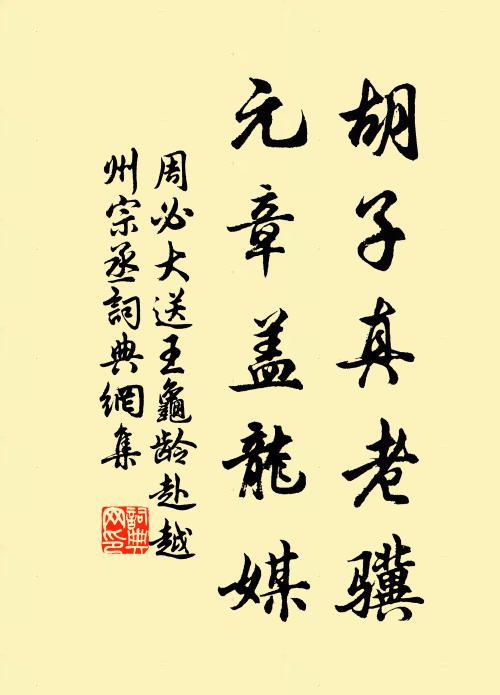 胡子真老驥
元章盖龍媒
周必大送王龜龄赴越
州宗丞詞典網集
詞典
网印